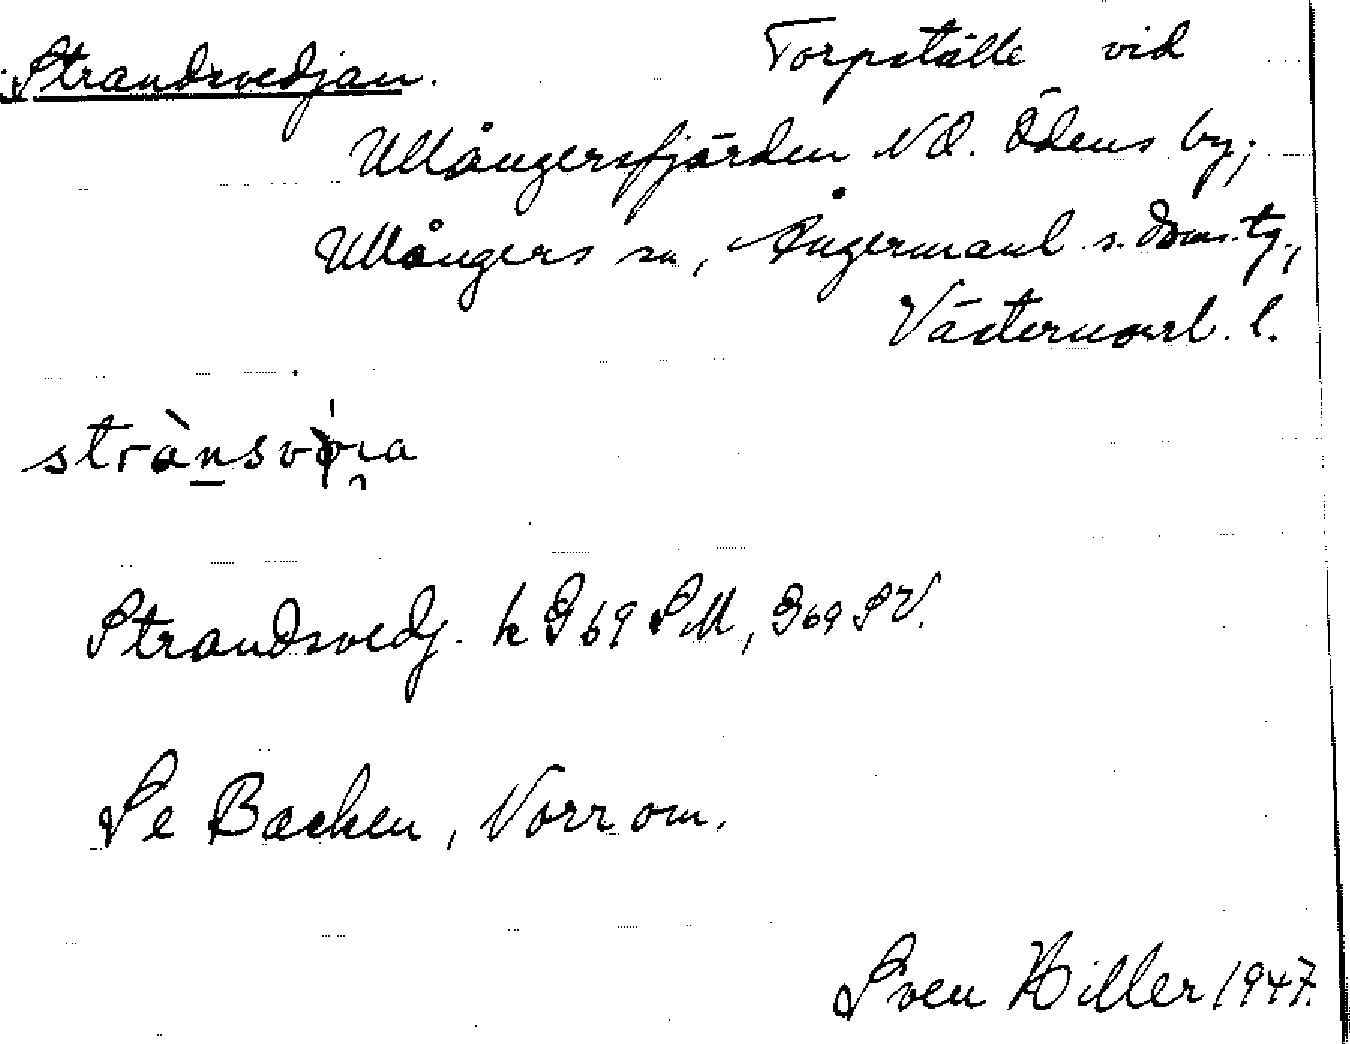 Strandsvedjan. Torpställe vid
Ullångersfjärden NO. Ödens by;
Ullångers sn, Ångermanl. s. doms. tg.,
Västernorrl. l.
Strandsvedj. k G 69 SM, G 69 SV.
Se Backen, Norrom.
Sven Hiller 1947.